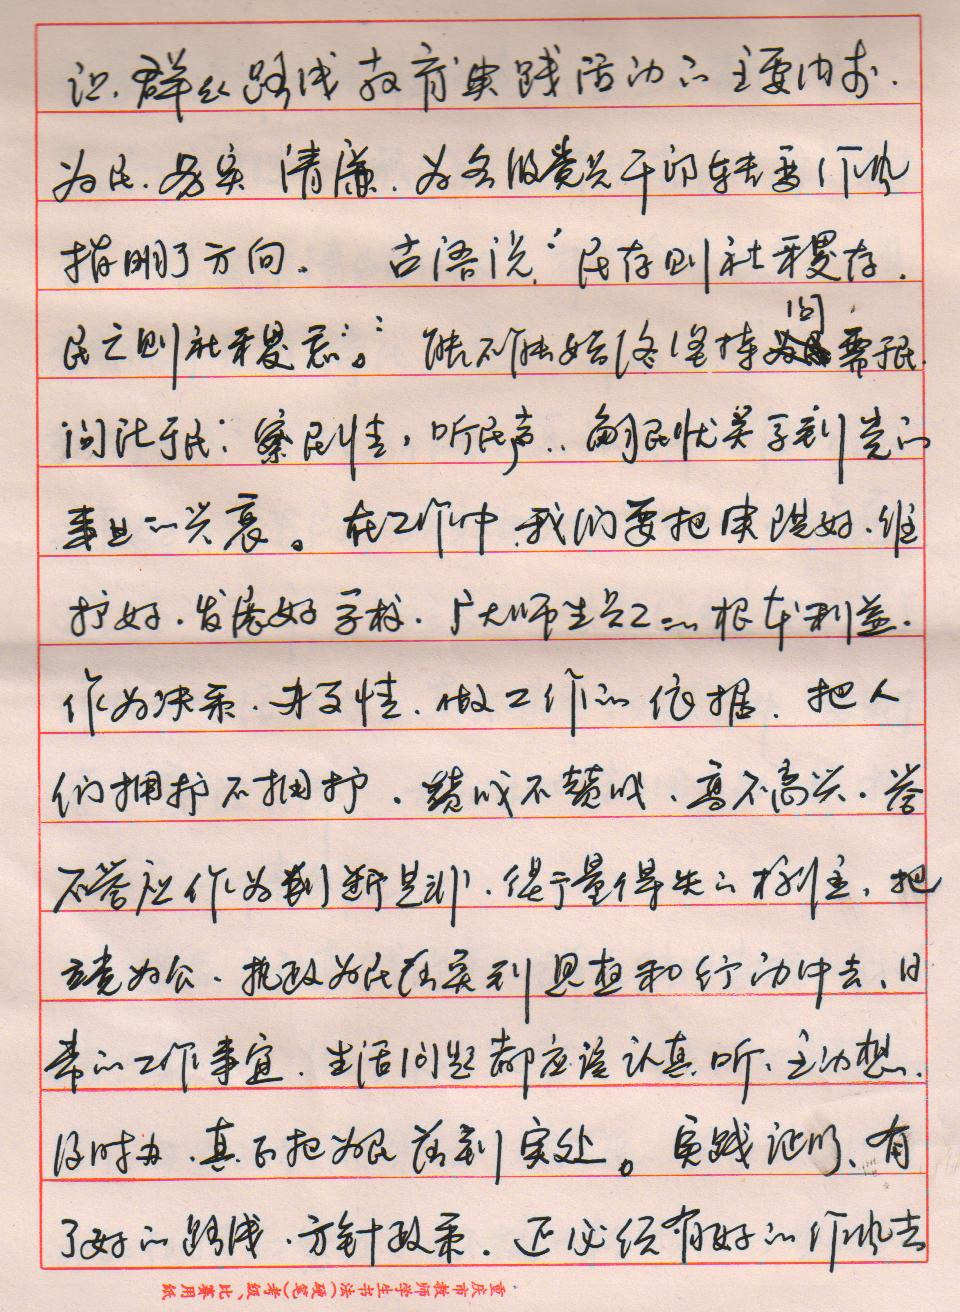 识。群众路线教育实践活动的主要内容，
为民、务实、清廉，为各级党员干部转变作风
指明了方向。 古语说："民存则社稷存，
民亡则社稷亡"。能不能始终坚持问需于民，
问计于民；察民情，听民声、解民忧关乎到党的
事业的兴衰。在工作中，我们要把实现好、维
护好、发展好学校、广大师生员工的根本利益，
作为决策、办事情、做工作的依据，把人
们拥护不拥护、赞成不赞成、高不高兴、答
不答应作为判断是非、衡量得失的标准，把
立党为公、执政为民落实到思想和行动中去，日
常的工作事宜、生活问题都应该认真听、主动想、
及时办，真正把为民落到实处。实践证明，有
了好的路线、方针政策，还必须有好的作风去
重庆市教师学生书法(硬笔)考级、比赛用纸